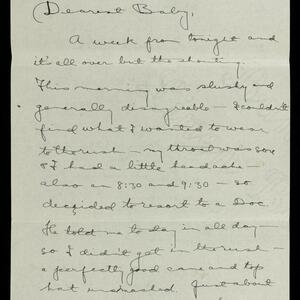 Dearest Baby,
A week from tonight and
it's all over but the shouting.
This morning was slushy and
generally disagreeable — I couldn't
find what I wanted to wear
to the rush — my throat was sore
& I had a little headache —
also an 8:30 and 9:30 — so
decided to resort to a Doc.
He told me to stay in all day —
so I didn't get in the rush —
a perfectly good cane and top
hat unmashed. Just about